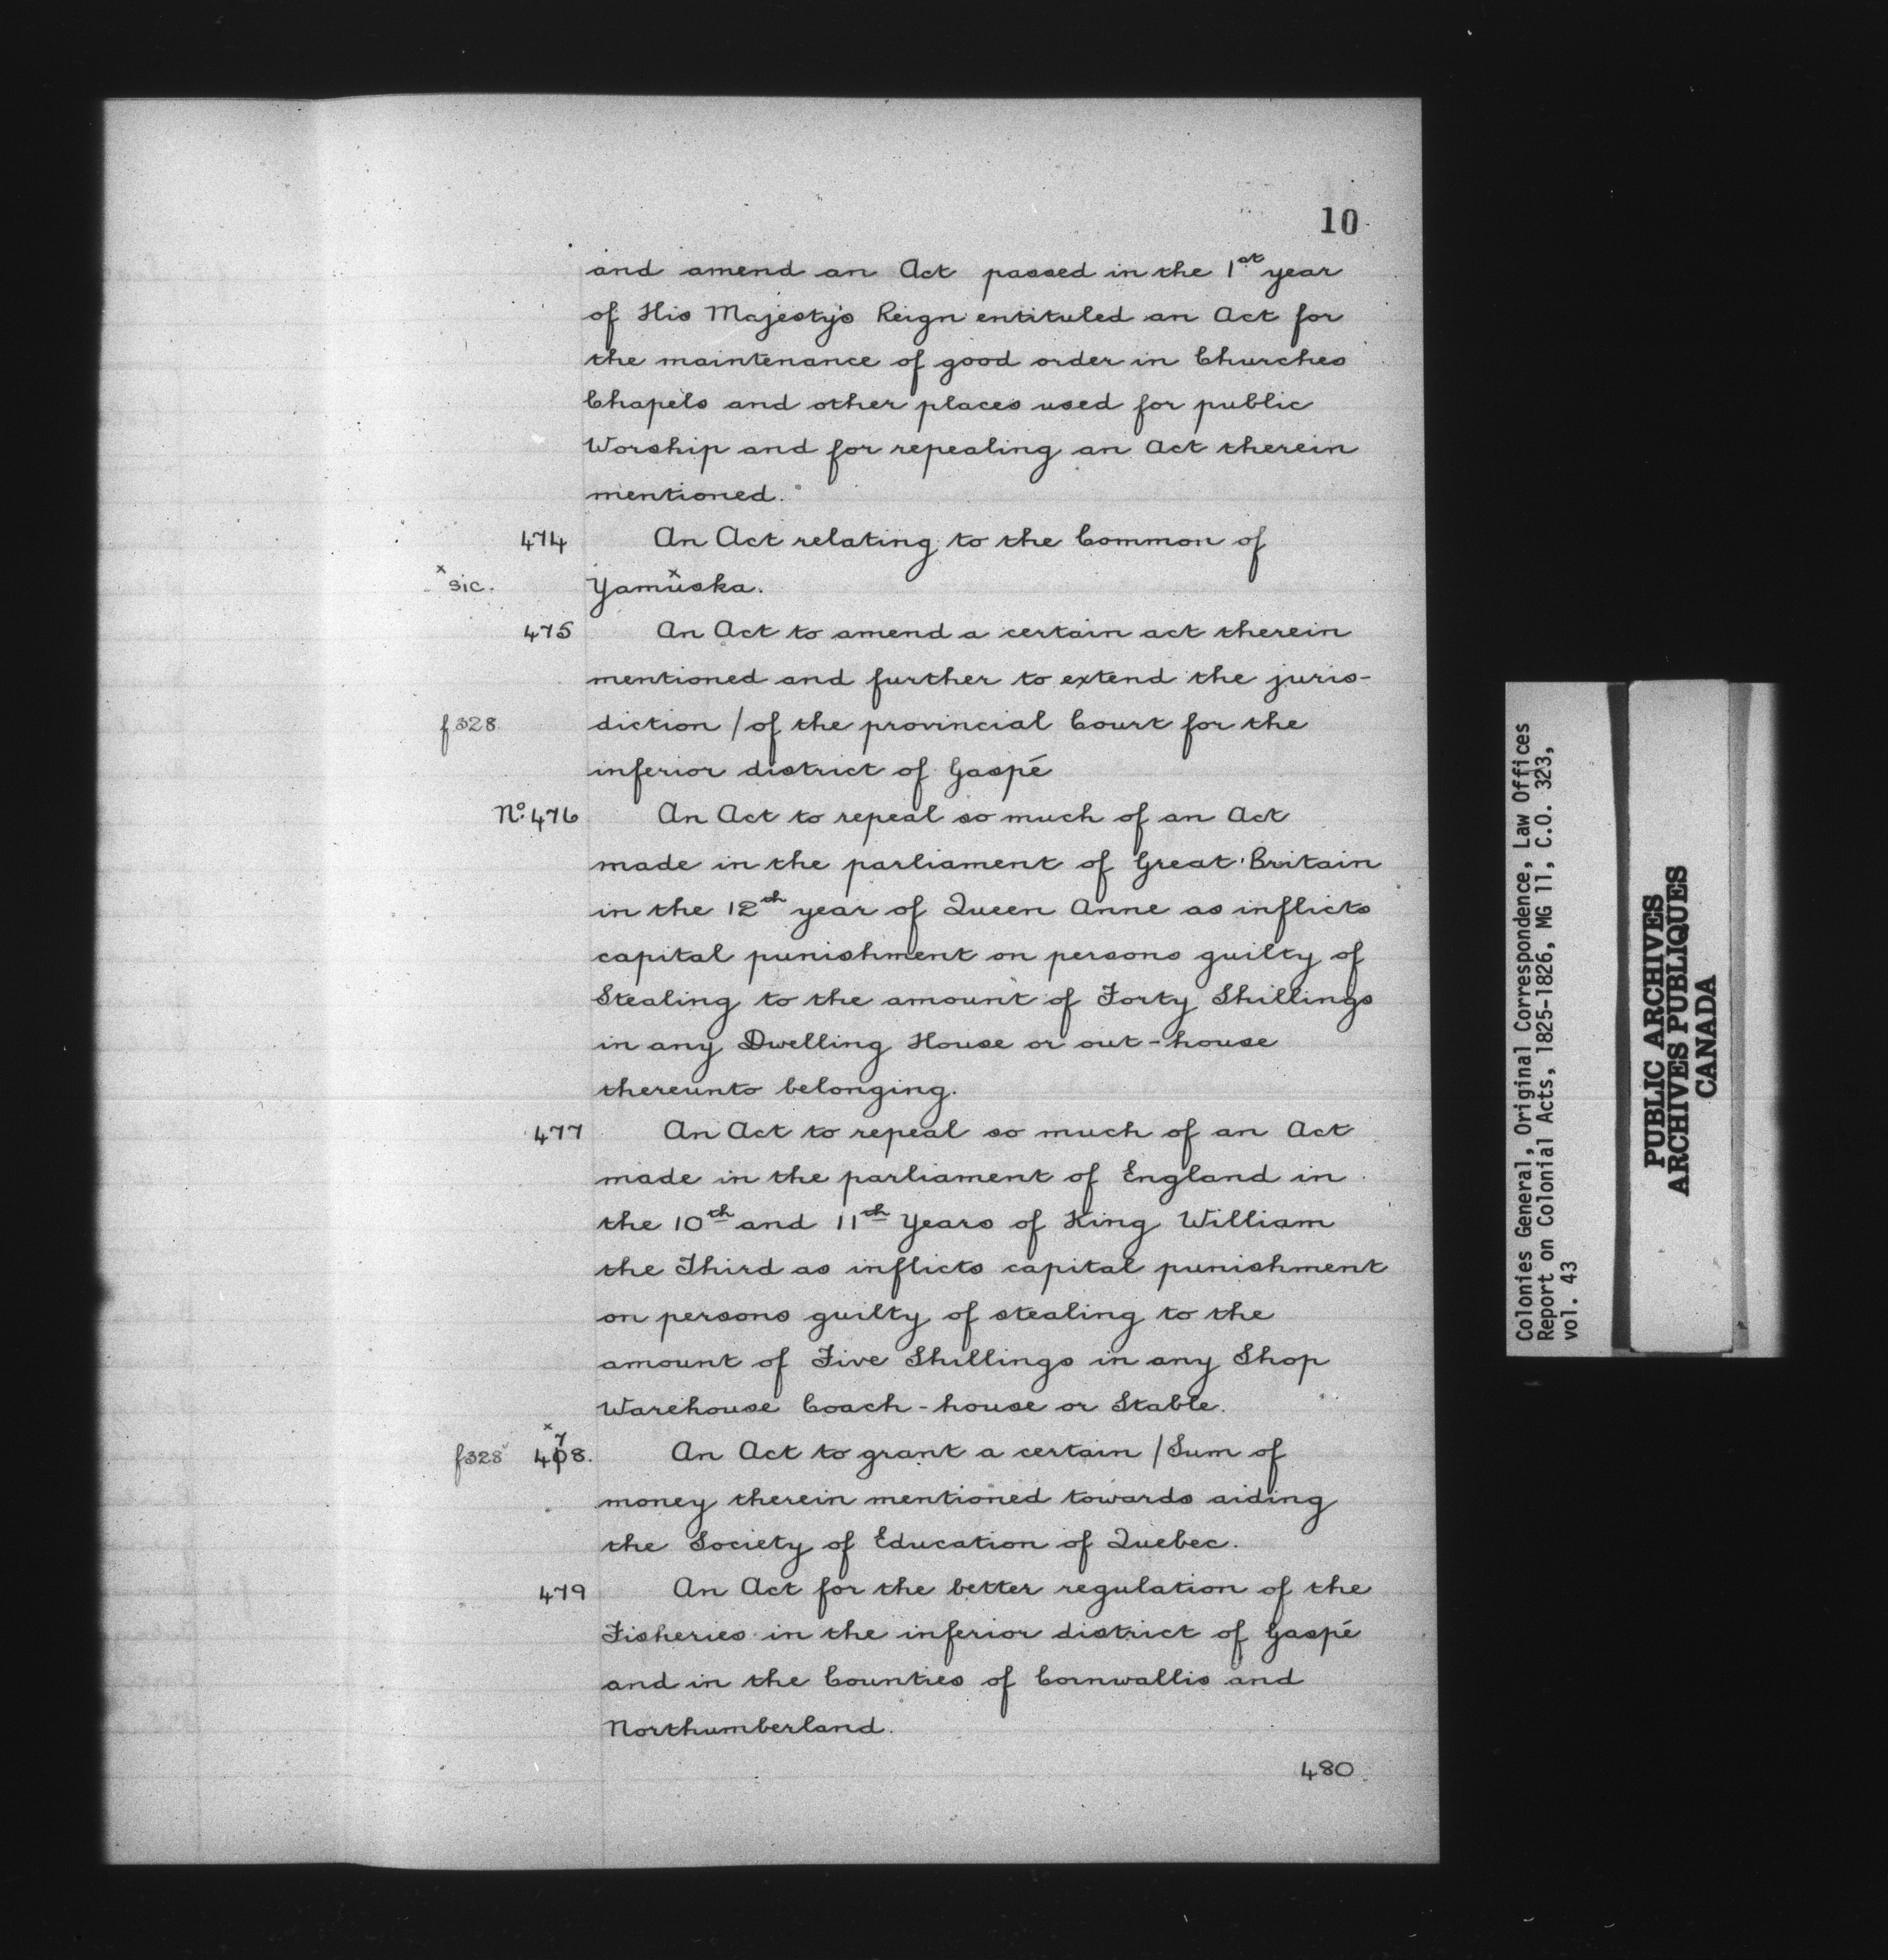 10
and amend an Act passed in the 1st year
of His Majesty's Reign entituled an Act for
the maintenance of good order in Churches
Chapels and other places used for public
Worship and for repealing an Act therein
mentioned.
474 An Act relating to the Common of
x sic. Yamuxska.
475 An Act to amend a certain act therein
mentioned and further to extend the juris-
f328 diction / of the provincial Court for the
inferior district of Gaspé
No. 476 An Act to repeal so much of an Act
made in the parliament of Great Britain
in the 12th year of Queen Anne as inflicts
capital punishment on persons guilty of
Stealing to the amount of Forty Shillings
in any Dwelling House or out-house
thereunto belonging.
477 An Act to repeal so much of an Act
made in the parliament of England in
the 10th and 11th Years of King William
the Third as inflicts capital punishment
on persons guilty of stealing to the
amount of Five Shillings in any Shop
Warehouse Coach-house or Stable.
f328v x 478. An Act to grant a certain / Sum of
money therein mentioned towards aiding
the Society of Education of Quebec.
479 An Act for the better regulation of the
Fisheries in the inferior district of Gaspé
and in the Counties of Cornwallis and
Northumberland.
480
Colonies General, Original Correspondence, Law Offices
Report on Colonial Acts, 1825-1826, MG 11, C.O. 323,
vol. 43
PUBLIC ARCHIVES
ARCHIVES PUBLIQUES
CANADA